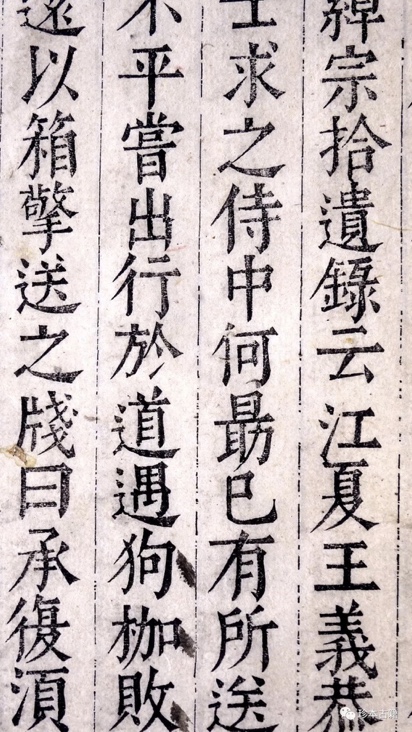 綽宗拾遺錄云江夏王義恭
士求之侍中何勗已有所送
不平嘗出行於道遇狗枷敗
還以箱擎送之牋曰承復須
珍本古籍